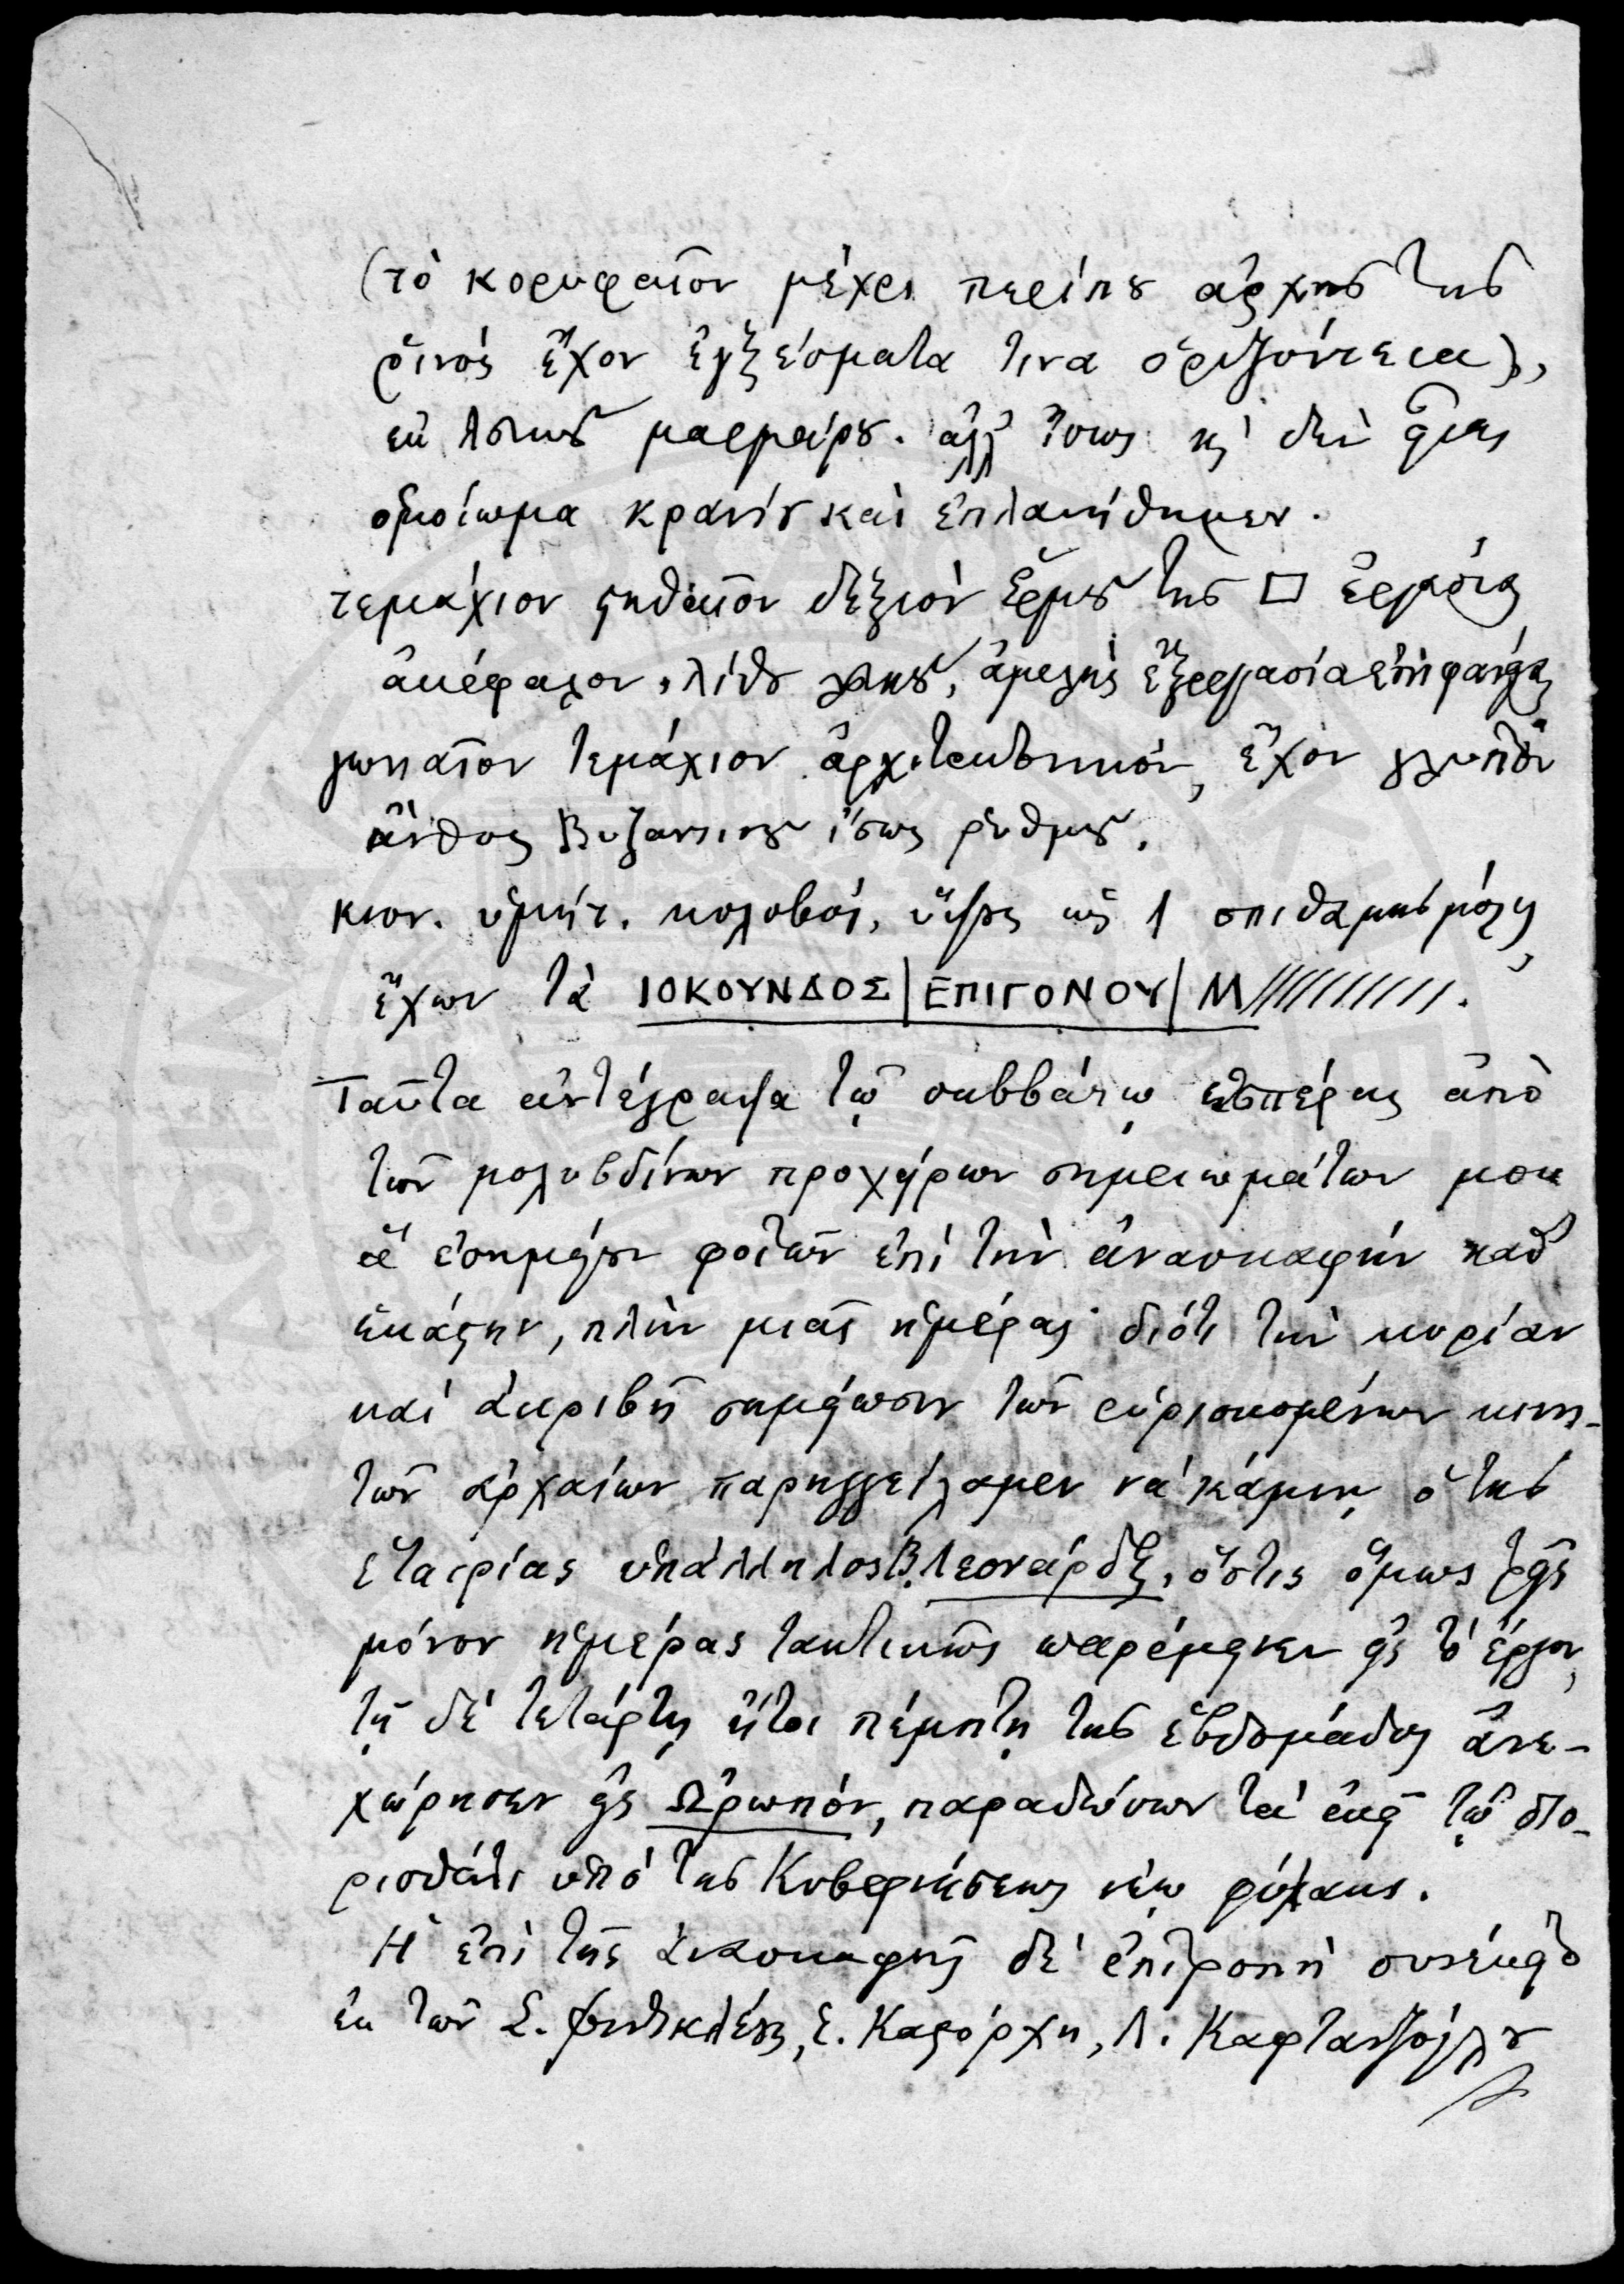 (τὸ κορυφαῖον μέχρι περίπου ἀρχῆς τῆς
ῥινός ἔχον ἐγξέσματα τινα ὁριζόντεια),
ἐκ λευκοῦ μαρμάρου. ἀλλ' ἴσως κỳ δὲν εἶναι
ὁμοίωμα κρανίου καὶ ἐπλανήθημεν.
τεμάχιον στηθαῖον δεξιὸν Ἑρμοῦ τῆς □ ἐργασίας
ἀκέφαλον, λίθου λευκοῦ, ἀμελὴς ἐξεργασία ἐπιφανείας
γωνιαῖον τεμάχιον ἀρχιτεκτονικόν, ἔχον γλυπτὸν
ἄνθος Βυζαντινοῦ ἴσως ῥυθμοῦ.
κιον. ὑμηττ. κολοβός, ὕψος ὡς 1 σπιθαμῆς μόλις
ἔχων τὰ ΙΟΚΟΥΝΔΟΣ|ΕΠΙΓΟΝΟΥ|Μ//////////.
Ταῦτα ἀντέγραψα τῷ σαββάτῳ ἑσπέρας ἀπὸ
τῶν μολυβδίνων προχείρων σημειωμάτων μου
ἃ ἐσημείουν φοιτῶν ἐπὶ τὴν ἀνασκαφὴν καθ'
ἑκάστην, πλὴν μιᾶς ἡμέρας· διότι τὴν κυρίαν
καὶ ἀκριβῆ σημείωσιν τῶν εὑρισκομένων κινη-
τῶν ἀρχαίων παρηγγείλαμεν νὰ κάμνῃ ὁ τῆς
ἑταιρίας ὑπάλληλος Β. Λεονάρδος, ὅστις ὅμως τρεῖς
μόνον ἡμέρας τακτικῶς παρέμεινεν εἰς τὸ ἔργον,
τῇ δὲ τετάρτῃ ἤτοι πέμπτῃ τῆς ἑβδομάδος ἀνε-
χώρησεν εἰς Ὠρωπόν, παραδώσων τὰ ἐκεῖ τῷ διο-
ρισθέντι ὑπὸ τῆς Κυβερνήσεως νέῳ φύλακι.
Ἡ ἐπὶ τῆς ἀνασκαφῆς δὲ ἐπιτροπὴ συνέκειτο
ἐκ τῶν Σ. Φιντικλέους, Ε. Καστόρχη, Λ. Καφταντζόγλου